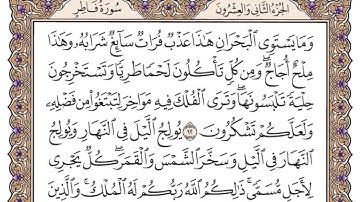 الجزء الثاني والعشرون سورة فاطر
وَمَا يَسْتَوِي الْبَحْرَانِ هَٰذَا عَذْبٌ فُرَاتٌ سَائِغٌ شَرَابُهُ وَهَٰذَا
مِلْحٌ أُجَاجٌ ۖ وَمِن كُلٍّ تَأْكُلُونَ لَحْمًا طَرِيًّا وَتَسْتَخْرِجُونَ
حِلْيَةً تَلْبَسُونَهَا ۖ وَتَرَى الْفُلْكَ فِيهِ مَوَاخِرَ لِتَبْتَغُوا مِن فَضْلِهِ
وَلَعَلَّكُمْ تَشْكُرُونَ ١٢ يُولِجُ اللَّيْلَ فِي النَّهَارِ وَيُولِجُ
النَّهَارَ فِي اللَّيْلِ وَسَخَّرَ الشَّمْسَ وَالْقَمَرَ كُلٌّ يَجْرِي
لِأَجَلٍ مُّسَمًّى ۚ ذَٰلِكُمُ اللَّهُ رَبُّكُمْ لَهُ الْمُلْكُ ۚ وَالَّذِينَ